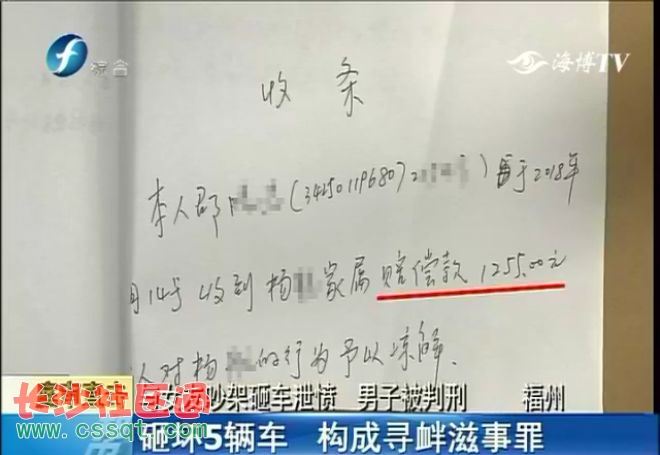 综合
海博TV
收条
本人郡(34250119680)于2018年
月14号收到杨家属赔偿款1255.00元
人对杨的行为予以谅解.
吵架砸车泄愤 男子被判刑 福州
长沙社区通
www.cssqt.com
砸坏5辆车 构成寻衅滋事罪